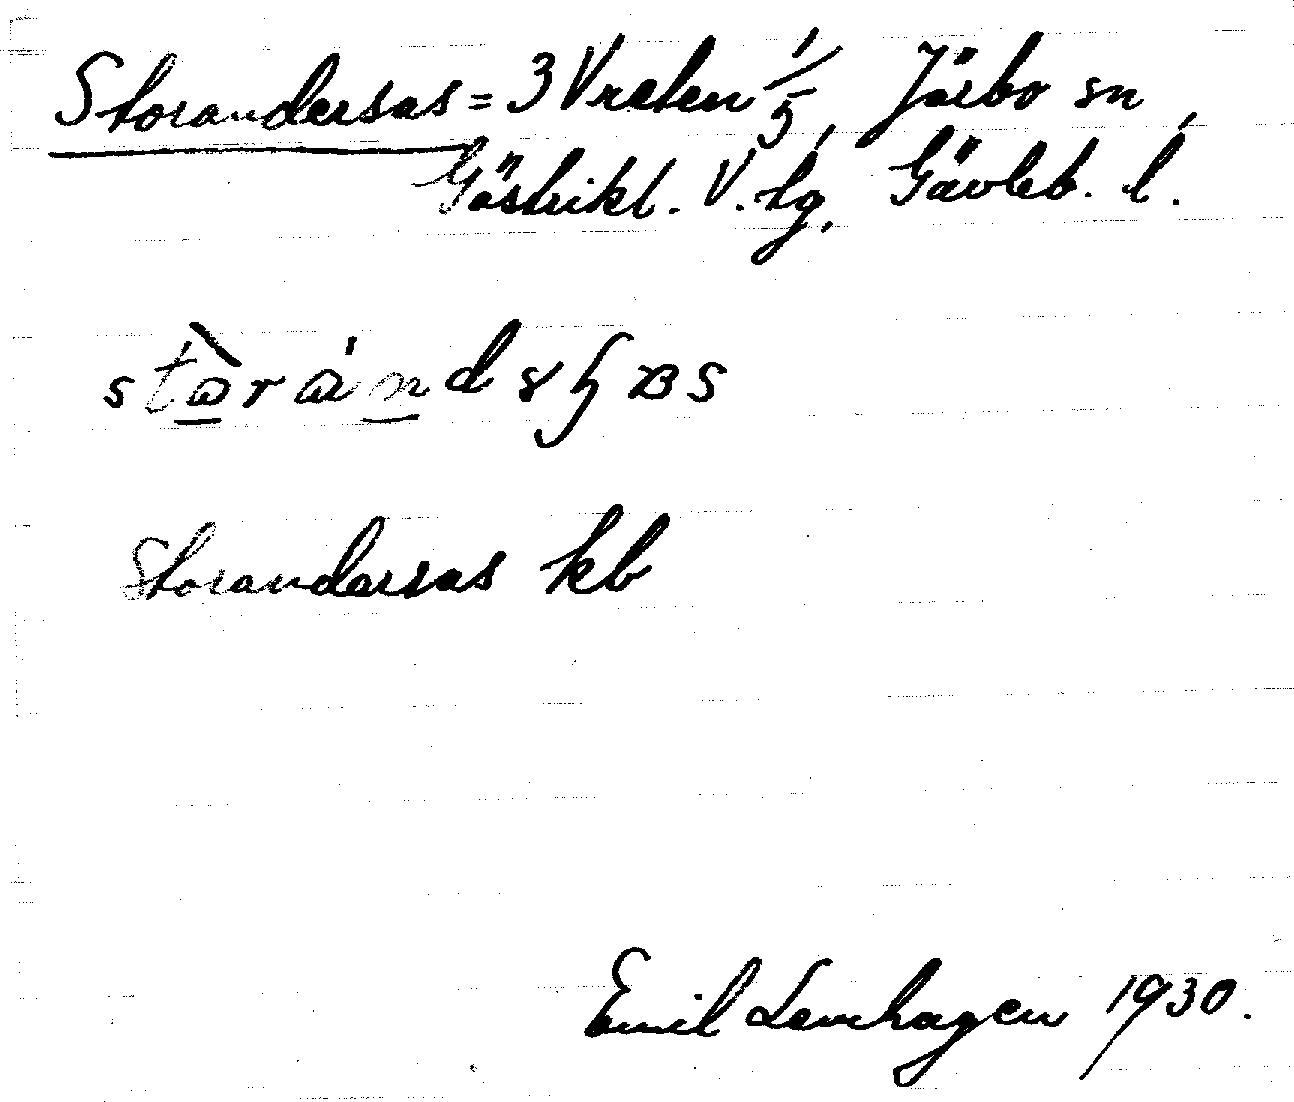 Storandersas = 3 Vreten 1/5, Järbo sn,
Gästrikl. V. tg, Gävleb. l.
Storandersas kb
Emil Levhagen 1930.